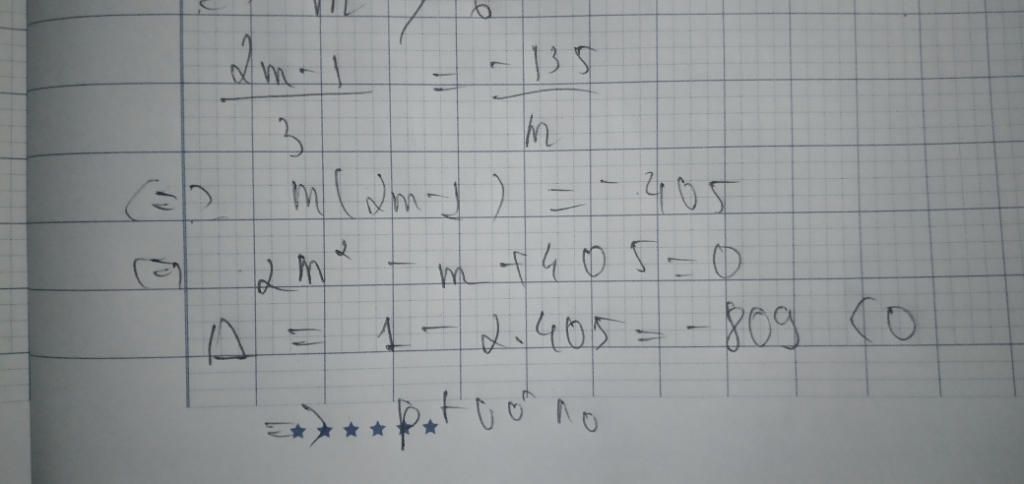 2m-1 / 3 = -135 / m
(=) m(2m-1) = -405
(=) 2m² - m + 405 = 0
Δ = 1 - 2.405 = -809 < 0
=> pt vô no